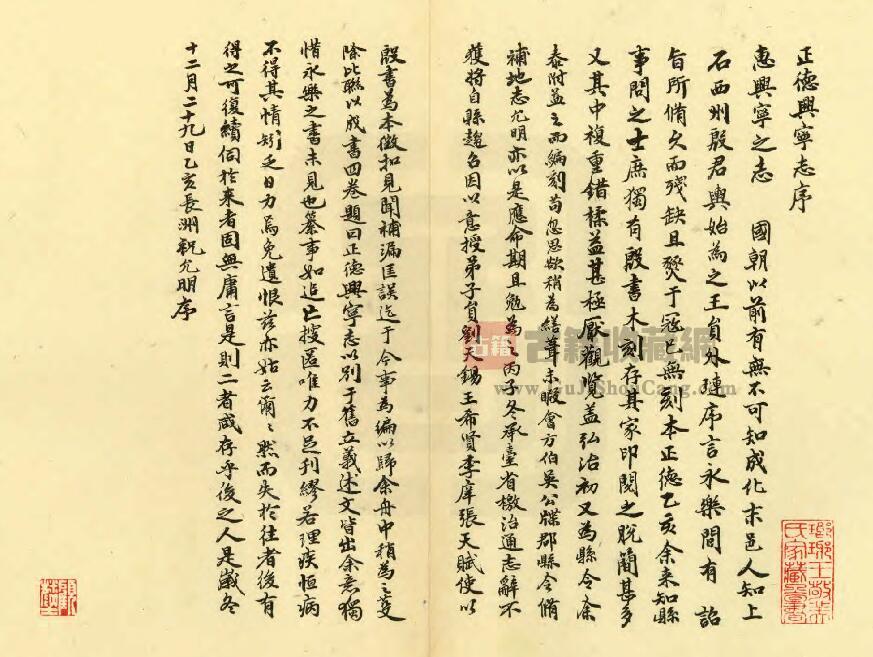 正德興寧志序
惠興寧之志 國朝以前有無不可知成化末邑人知上
石西州殷君輿始為之王員外璉序言永樂間有 詔
旨所備欠而殘缺且燹于寇已無刻本正德乙亥余来知縣
事問之士庶獨有殷書木刻存其家印閱之脫簡甚多
又其中複重錯揉益甚極厭觀覽盖弘治初又為縣令
泰附益之而編刻苟忽思欲稍為繕葺未暇會方伯吳公牒郡縣令脩
補地志允明亦以是應命期且勉為之丙子冬承臺省檄治通志辭不
獲將自縣趨台因以意授弟子員劉天錫王希賢李庠張天賦使以
殷書為本徵扣見聞補漏匡誤迄于今事為編以歸余舟中稍為之芟
除比聯以成書四卷題曰正德興寧志以别于舊立義述文皆出余意獨
惜永樂之書未見也纂事如追亡搜匿唯力不足刋繆若理疾恒病
不得其情矧乏日力焉免遺恨兹亦姑云爾然而失於往者後有
得之可復續伺於来者固無庸言是則二者咸存乎後之人是歲冬
十二月二十九日乙亥長洲祝允明序
古籍
古籍收藏網
www.GuJiShouCang.com